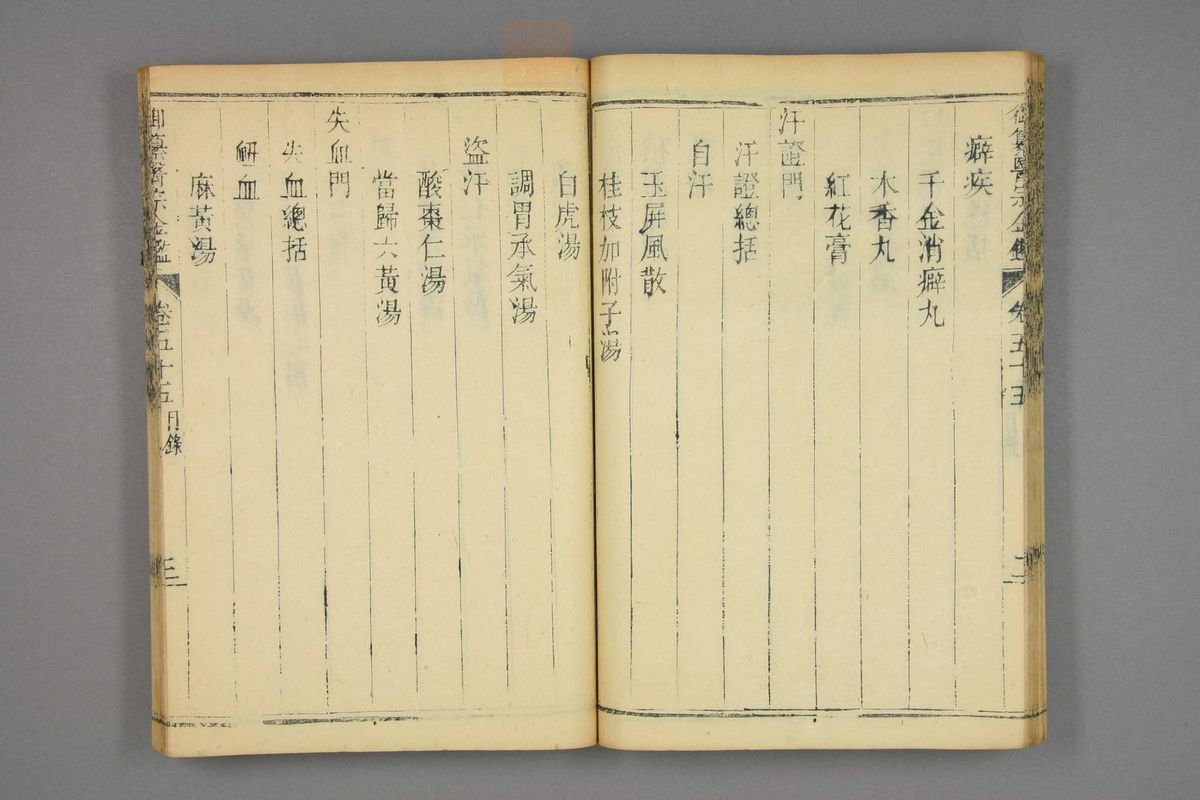 御纂醫宗金鑑 卷五十五 二
癖疾
千金消癖丸
木香丸
紅花膏
汗證門
汗證總括
自汗
玉屏風散
桂枝加附子湯
白虎湯
調胃承氣湯
盜汗
酸棗仁湯
當歸六黃湯
失血門
失血總括
衂血
麻黃湯
御纂醫宗金鑑 卷五十五 目錄 三